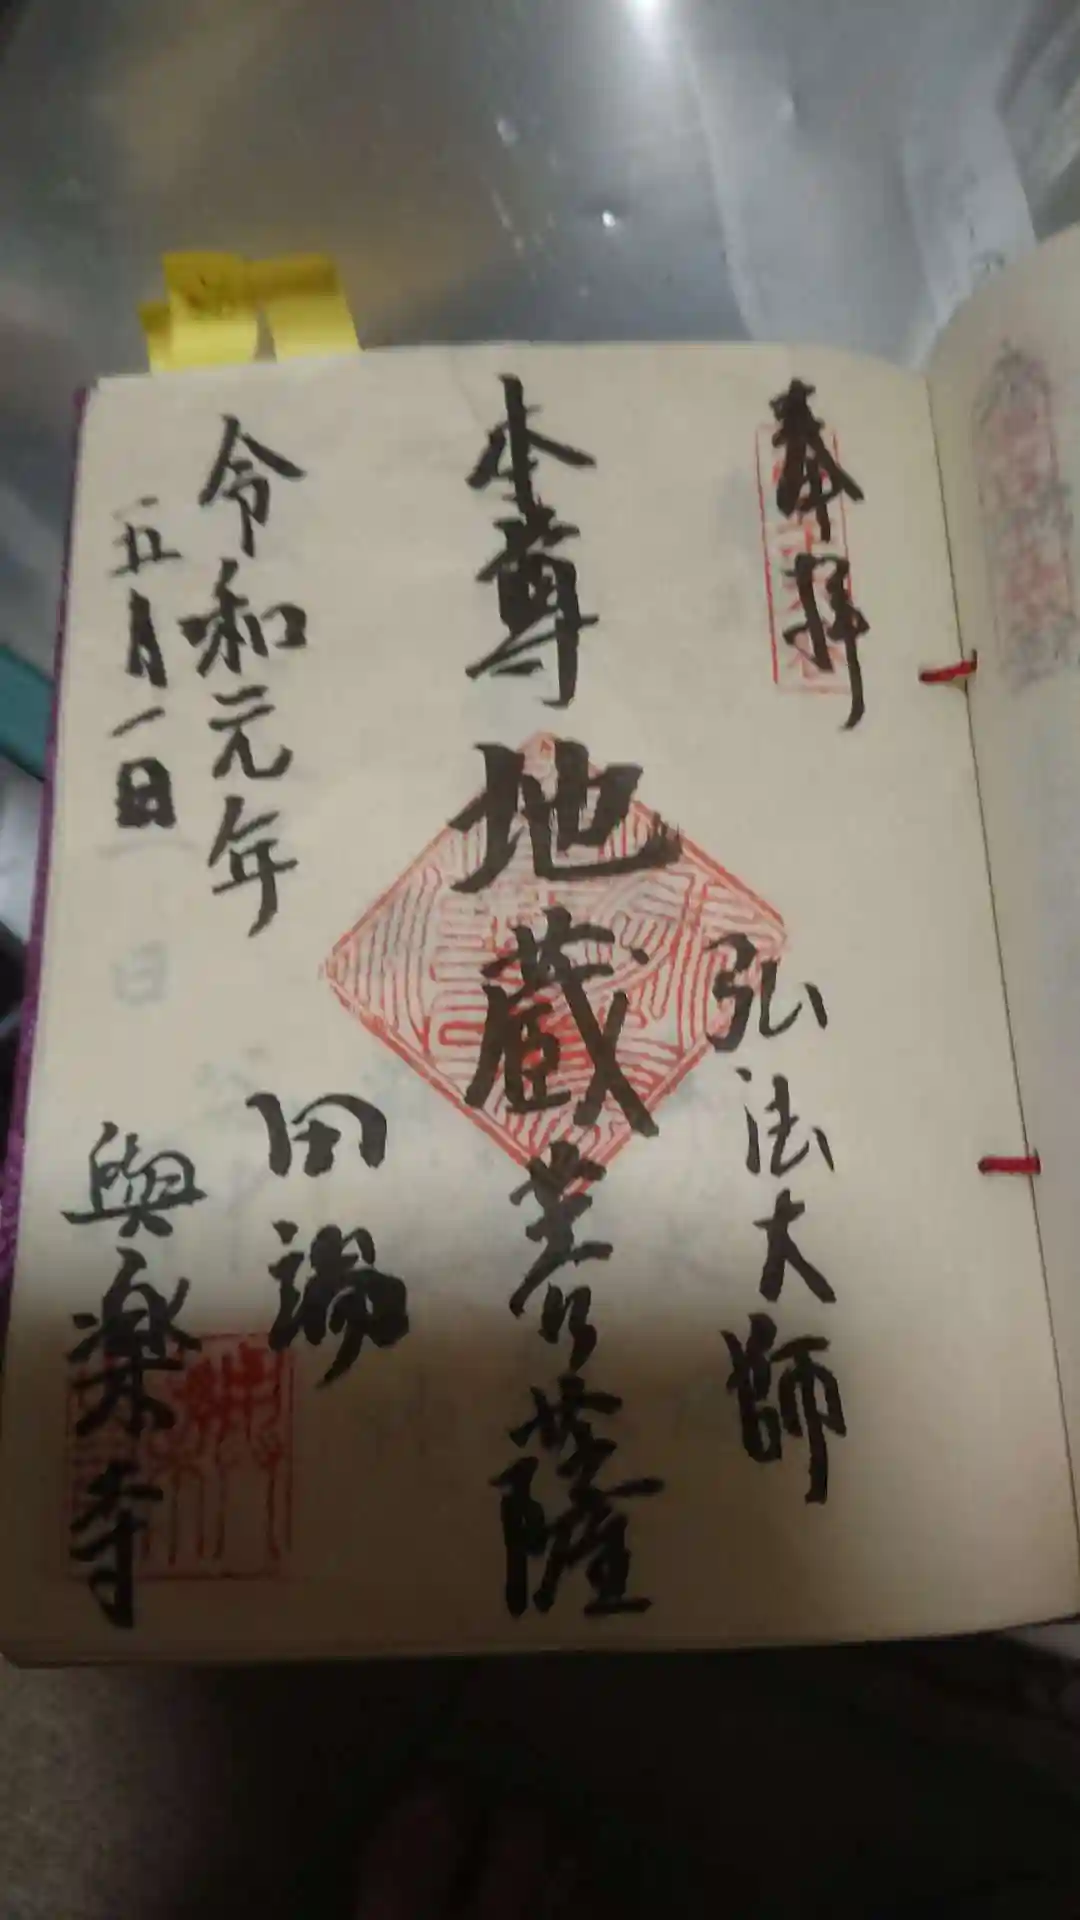 奉拝
弘法大師
本尊
地蔵菩薩
令和元年
五月一日
田端
與楽寺